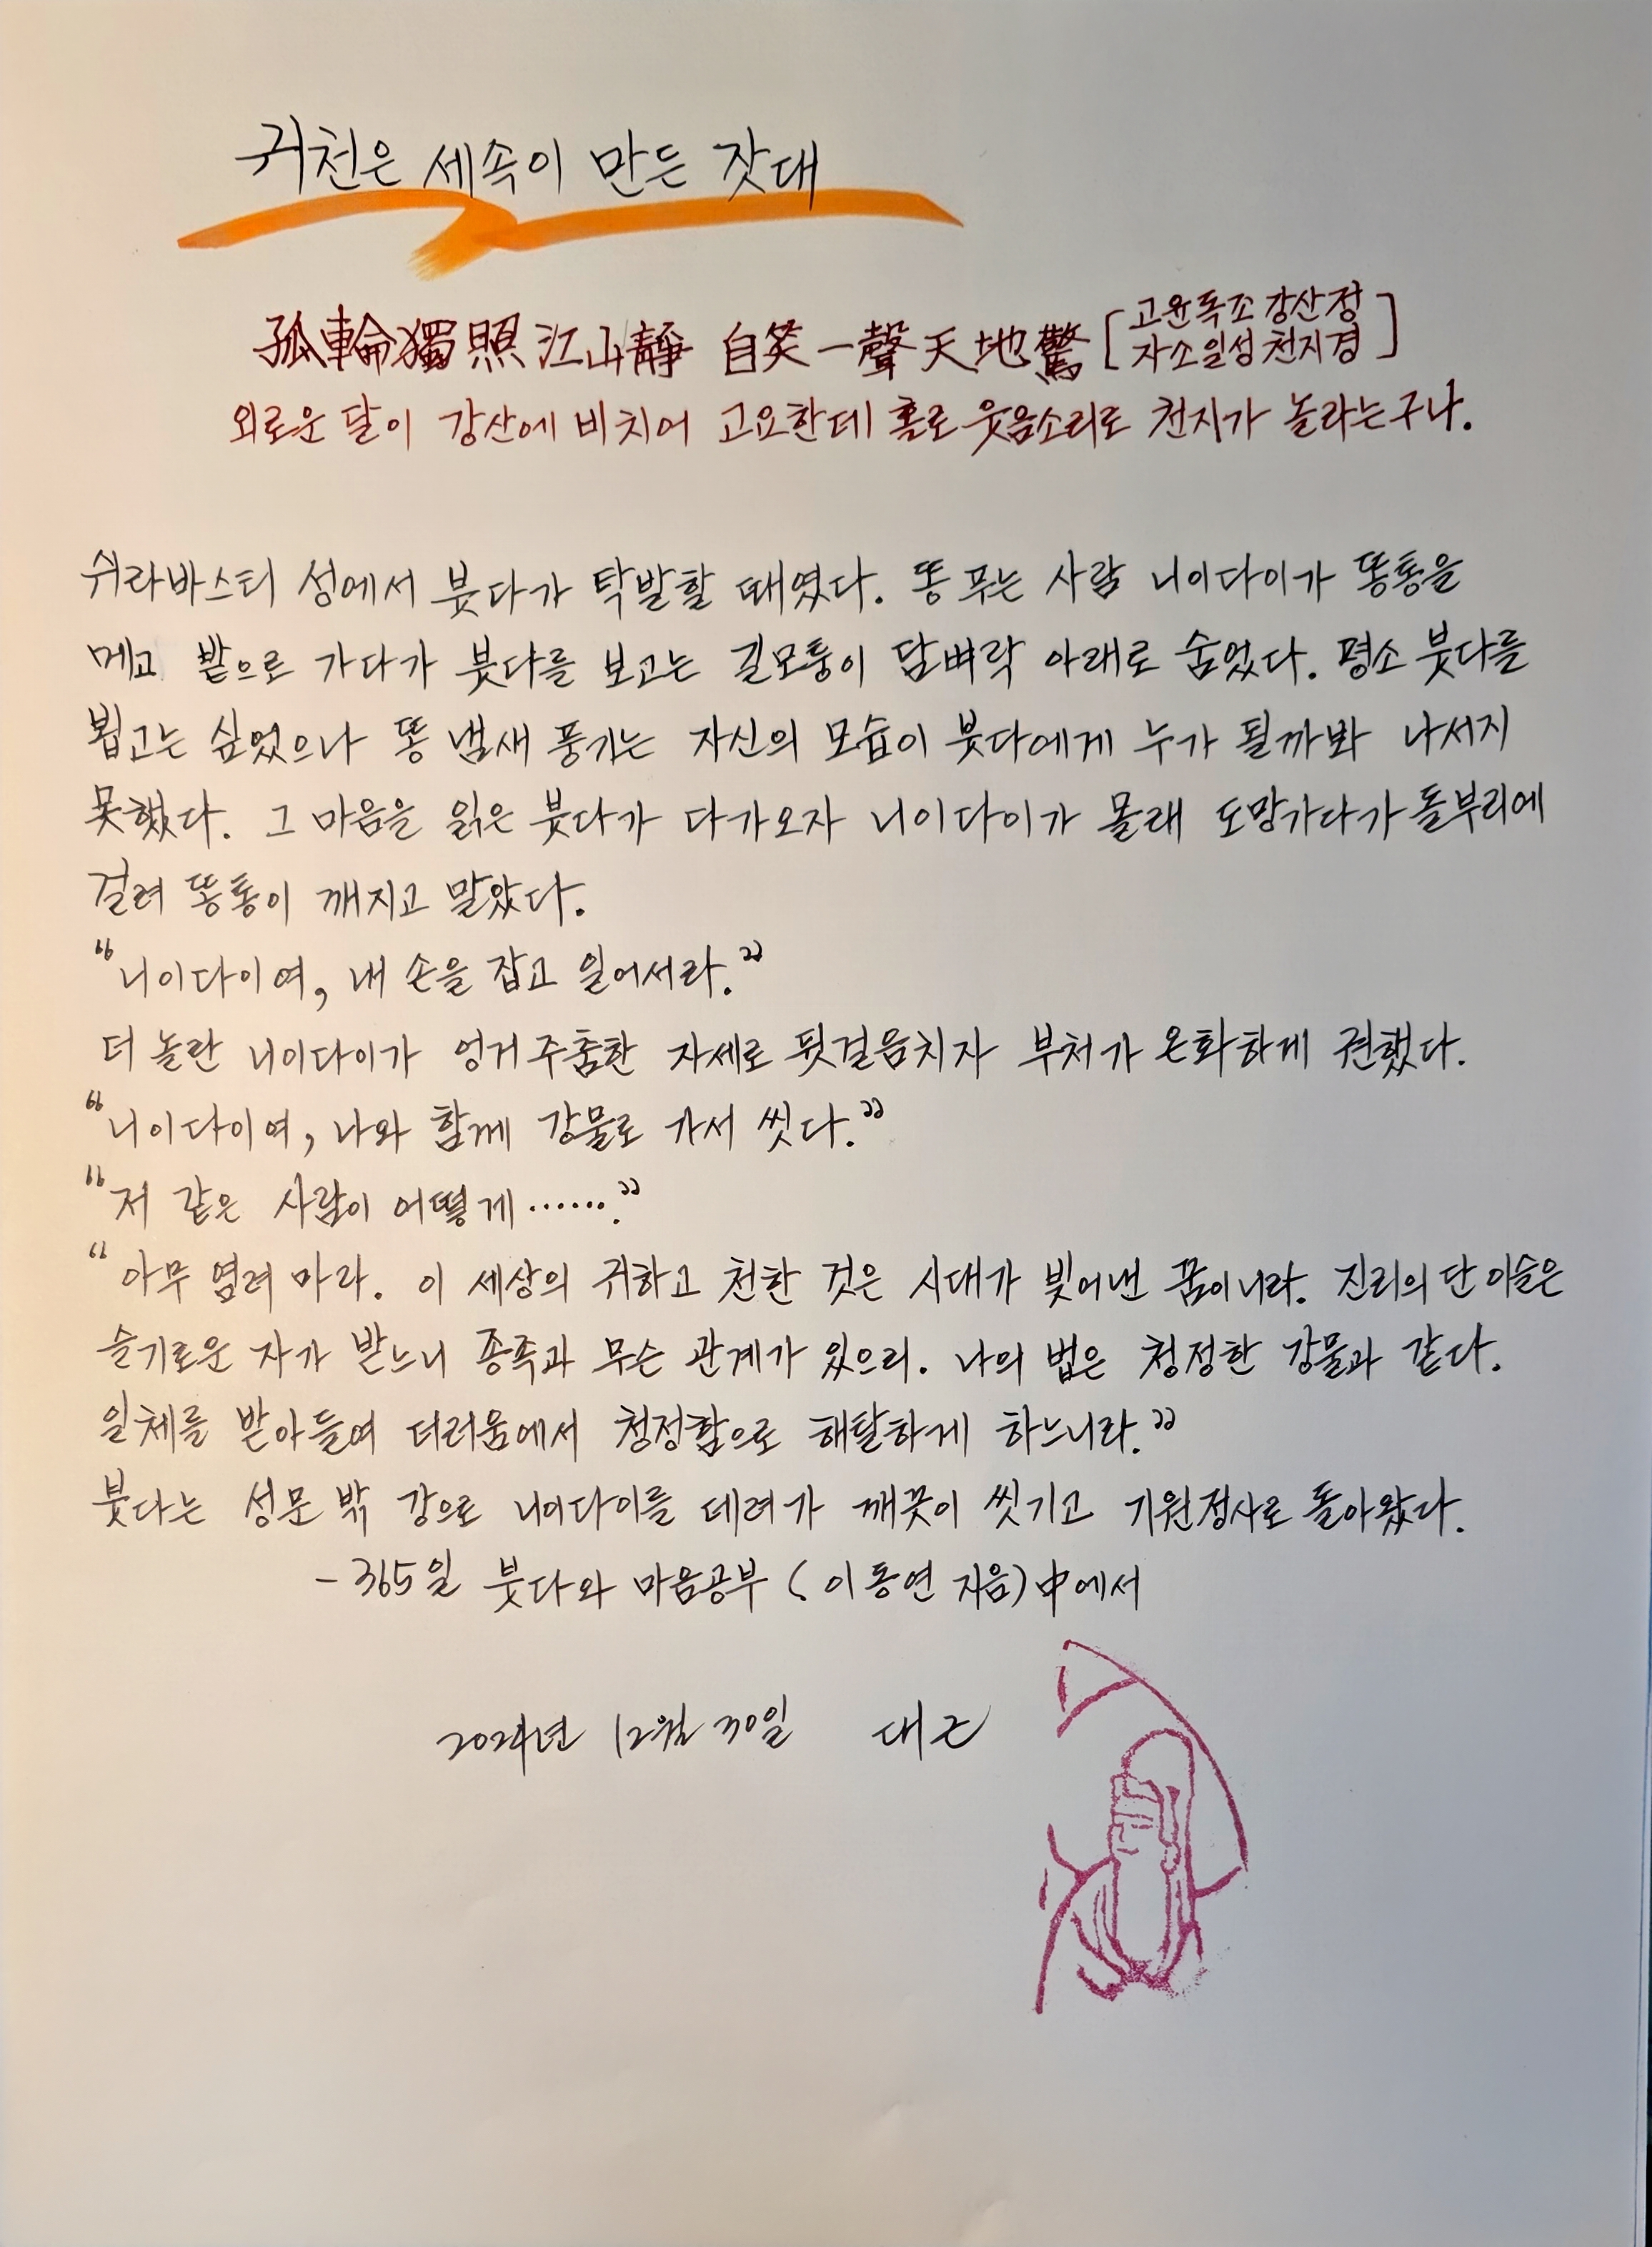 귀천은 세속이 만든 잣대
孤輪獨照江山靜 自笑一聲天地驚 [고윤독조강산정
자소일성천지경]
외로운 달이 강산에 비치어 고요한데 홀로 웃음소리로 천지가 놀라는구나.
쉬라바스티 성에서 붓다가 탁발할 때였다. 똥 푸는 사람 니이다이가 똥통을
메고 밭으로 가다가 붓다를 보고는 길모퉁이 담벼락 아래로 숨었다. 평소 붓다를
뵙고는 싶었으나 똥 냄새 풍기는 자신의 모습이 붓다에게 누가 될까봐 나서지
못했다. 그 마음을 읽은 붓다가 다가오자 니이다이가 몰래 도망가다가 돌부리에
걸려 똥통이 깨지고 말았다.
“니이다이여, 내 손을 잡고 일어서라.”
더 놀란 니이다이가 엉거주춤한 자세로 뒷걸음치자 부처가 온화하게 권했다.
“니이다이여, 나와 함께 강물로 가서 씻다.”
“저 같은 사람이 어떻게…….”
“아무 염려 마라. 이 세상의 귀하고 천한 것은 시대가 빚어낸 꿈이니라. 진리의 단 이슬은
슬기로운 자가 받느니 종족과 무슨 관계가 있으리. 나의 법은 청정한 강물과 같다.
일체를 받아들여 더러움에서 청정함으로 해탈하게 하느니라.”
붓다는 성문 밖 강으로 니이다이를 데려가 깨끗이 씻기고 기원정사로 돌아왔다.
- 365일 붓다와 마음공부 (이동연 지음) 中에서
2024년 12월 30일 대근